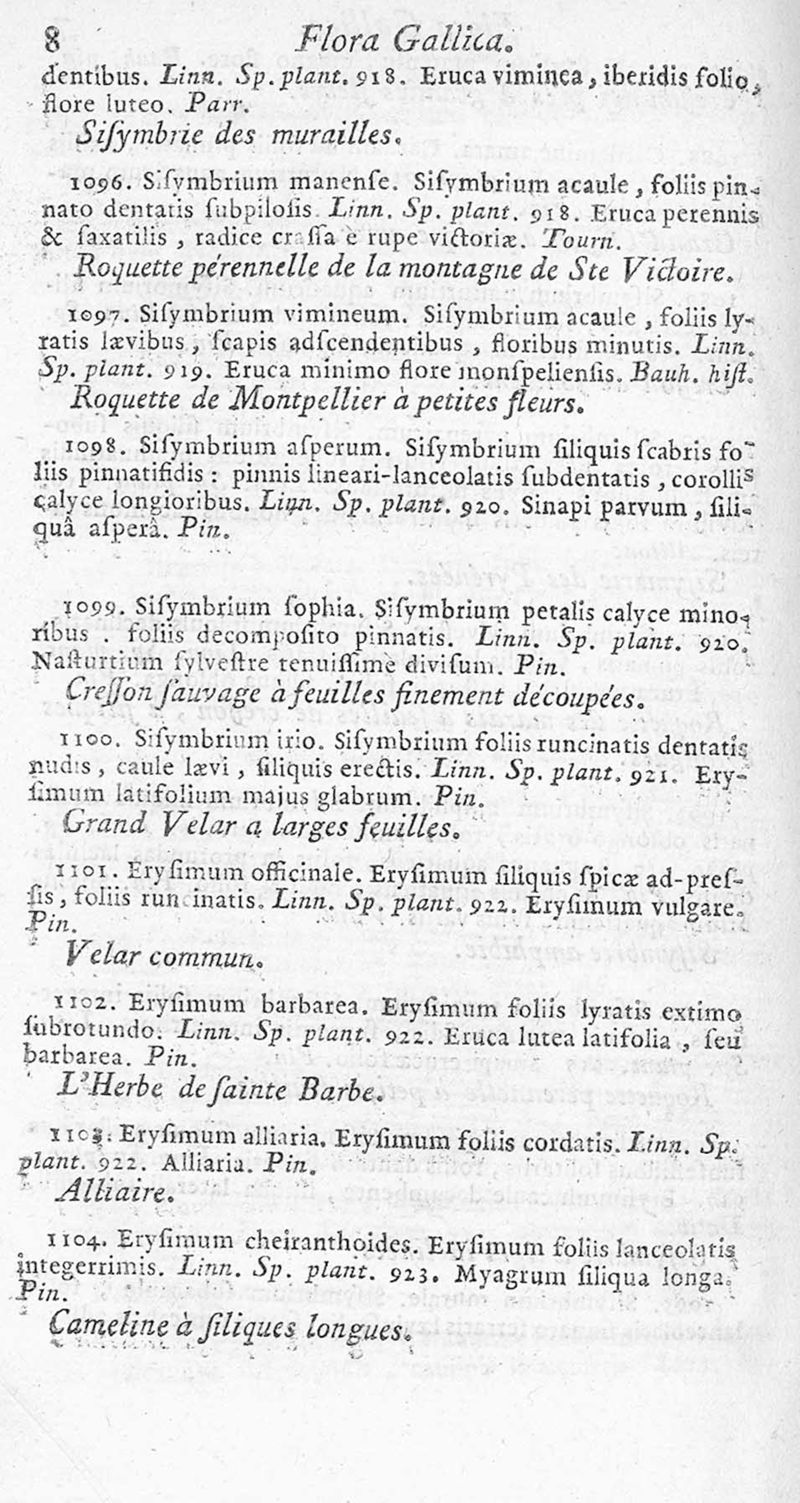 8 Flora Gallica.
dentibus. Linn. Sp. plant. 918. Eruca viminea, iberidis folio,
flore luteo. Parr.
Siſymbrie des murailles.
1096. Siſymbrium manenſe. Siſymbrium acaule, foliis pin-
nato dentatis ſubpiloſis. Linn. Sp. plant. 918. Eruca perennis
& ſaxatilis, radice craſſa è rupe victoriæ. Tourn.
Roquette pérennelle de la montagne de Ste Victoire.
1097. Siſymbrium vimineum. Siſymbrium acaule, foliis ly-
ratis lævibus, ſcapis adſcendentibus, floribus minutis. Linn.
Sp. plant. 919. Eruca minimo flore monſpelienſis. Bauh. hiſt.
Roquette de Montpellier à petites fleurs.
1098. Siſymbrium aſperum. Siſymbrium ſiliquis ſcabris fo-
liis pinnatifidis : pinnis lineari-lanceolatis ſubdentatis, corollis
calyce longioribus. Linn. Sp. plant. 920. Sinapi parvum, ſili-
quâ aſperâ. Pin.
1099. Siſymbrium ſophia. Siſymbrium petalis calyce mino-
ribus. foliis decompoſito pinnatis. Linn. Sp. plant. 920.
Naſturtium ſylveſtre tenuiſſimè diviſum. Pin.
Creſſon ſauvage à feuilles finement découpées.
1100. Siſymbrium irio. Siſymbrium foliis runcinatis dentatis
nudis, caule lævi, ſiliquis erectis. Linn. Sp. plant. 921. Ery-
ſimum latifolium majus glabrum. Pin.
Grand Velar a larges feuilles.
1101. Eryſimum officinale. Eryſimum ſiliquis ſpicæ ad-preſ-
ſis, foliis runcinatis. Linn. Sp. plant. 922. Eryſimum vulgare.
Pin.
Velar commun.
1102. Eryſimum barbarea. Eryſimum foliis lyratis extimo
ſubrotundo. Linn. Sp. plant. 922. Eruca lutea latifolia, ſeu
barbarea. Pin.
L'Herbe de ſainte Barbe.
1103. Eryſimum alliaria. Eryſimum foliis cordatis. Linn. Sp.
plant. 922. Alliaria. Pin.
Alliaire.
1104. Eryſimum cheiranthoides. Eryſimum foliis lanceolatis
integerrimis. Linn. Sp. plant. 923. Myagrum ſiliqua longa.
Pin.
Cameline à ſiliques longues.